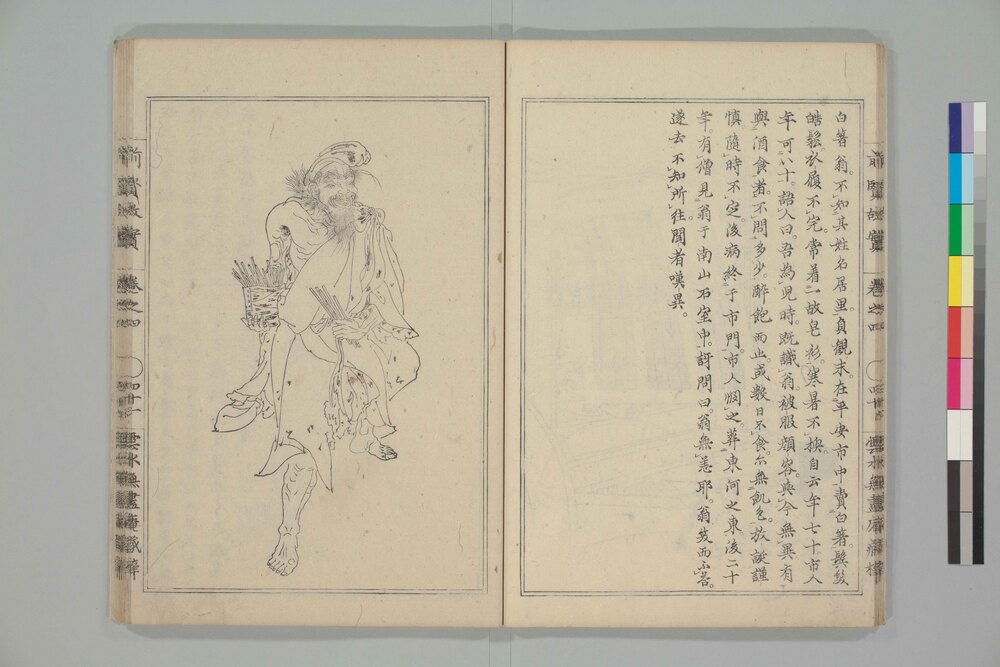 白箸翁。不知其姓名居里。貞観末在平安市中賣白箸。鬓髪
皓鬆衣履不完。常着一故皂衫。寒暑不換。自云年七十。市人
年可八十。語人曰。吾為児時。既識翁。被服顔容。與今無異。有
與酒食者。不問多少。酔飽而止。或数日不食。亦無飢色。放誕謹
慎。隨時不定。後病終于市門。市人憫之。葬東河之東。後二十
年。有僧見翁于南山石室中。訝問曰。翁無恙耶。翁笑而不答。
遂去不知所往。聞者嘆異。
前賢故實
卷之四
前賢故實
卷之四
雲水無盡庵藏梓